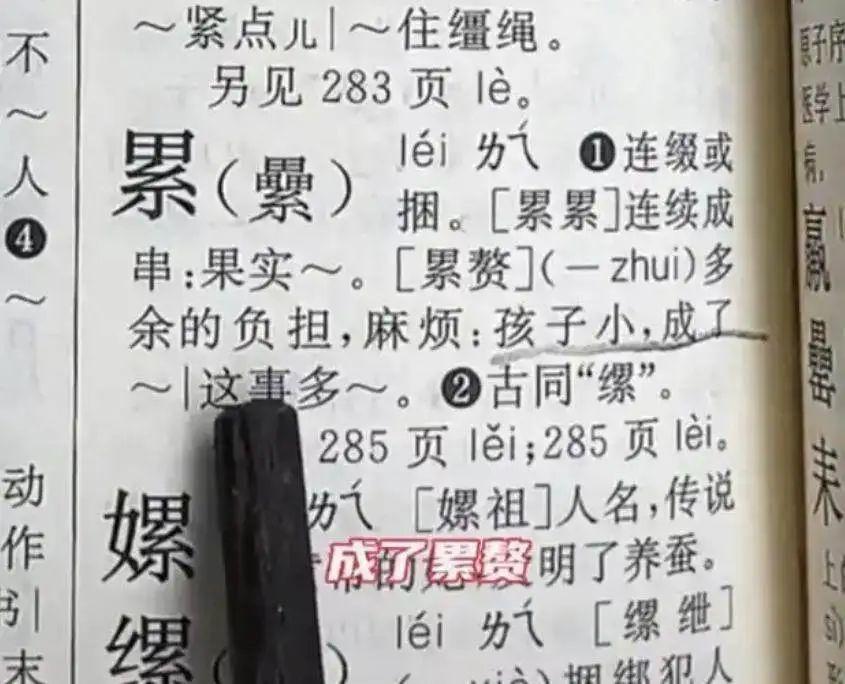 不
～
人
❹
～
动
作
书|
末
～紧点儿|～住缰绳。
另见 283 页 lè。
累(纍) léi ㄌㄟˊ ❶连缀或
捆。[累累]连续成
串:果实～。[累赘](－zhui)多
余的负担,麻烦:孩子小,成了
～|这事多～。❷古同“缧”。
285 页 lěi;285 页 lèi。
嫘 ㄌㄟˊ [嫘祖]人名,传说
明了养蚕。
成了累赘
缧 léi ㄌㄟˊ [缧绁]
捆绑犯人
原子序
医学上
病,
羸
罍
耒
上的